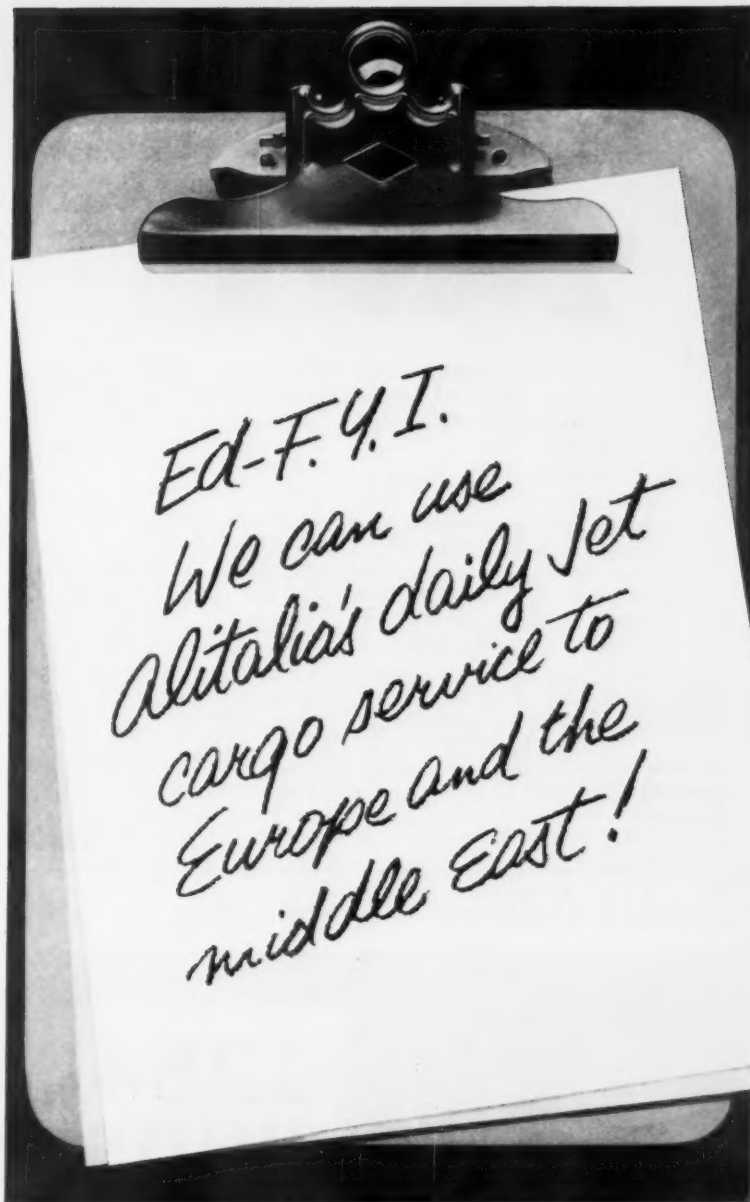 Ed-F.Y.I.
We can use
Alitalia's daily Jet
cargo service to
Europe and the
middle East!